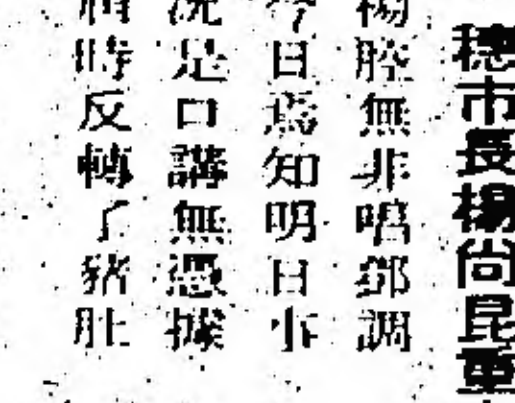 穗市長楊尚昆重
楊腔無非唱鄧調
今日焉知明日事
況是口講無憑據
時反轉了豬肚